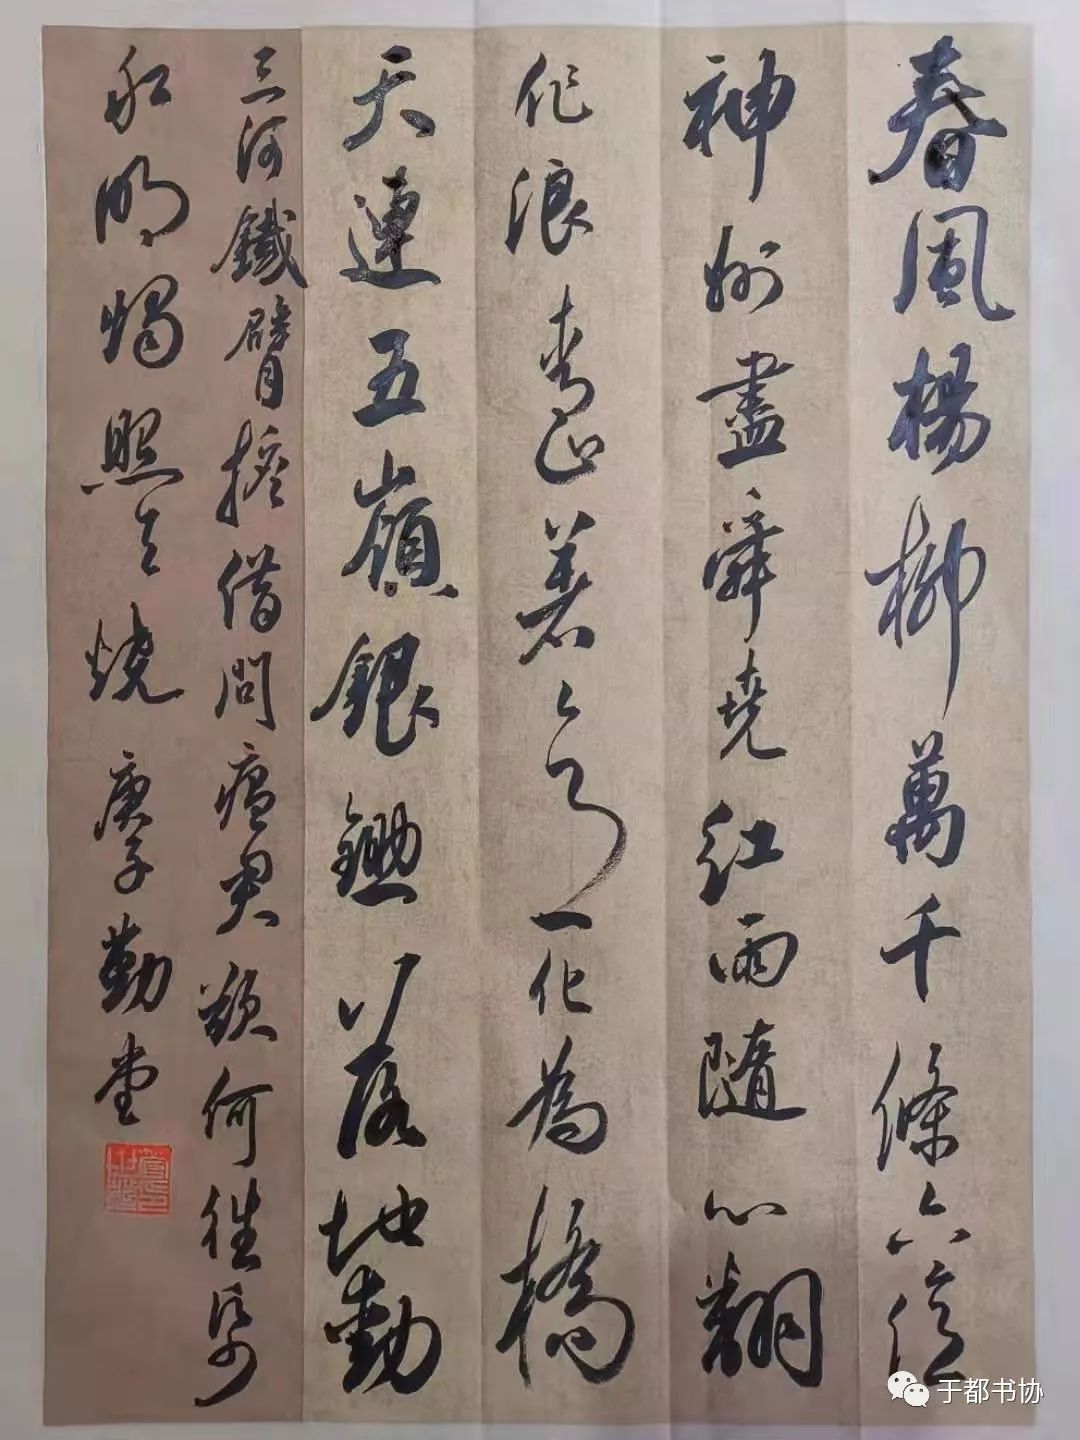 春風楊柳萬千條六億
神州盡舜堯紅雨隨心翻
作浪青山著意化為橋
天連五嶺銀鋤落地動
三河鐵臂搖借問瘟君欲何往紙
船明燭照天燒庚子勤堂
于都书协